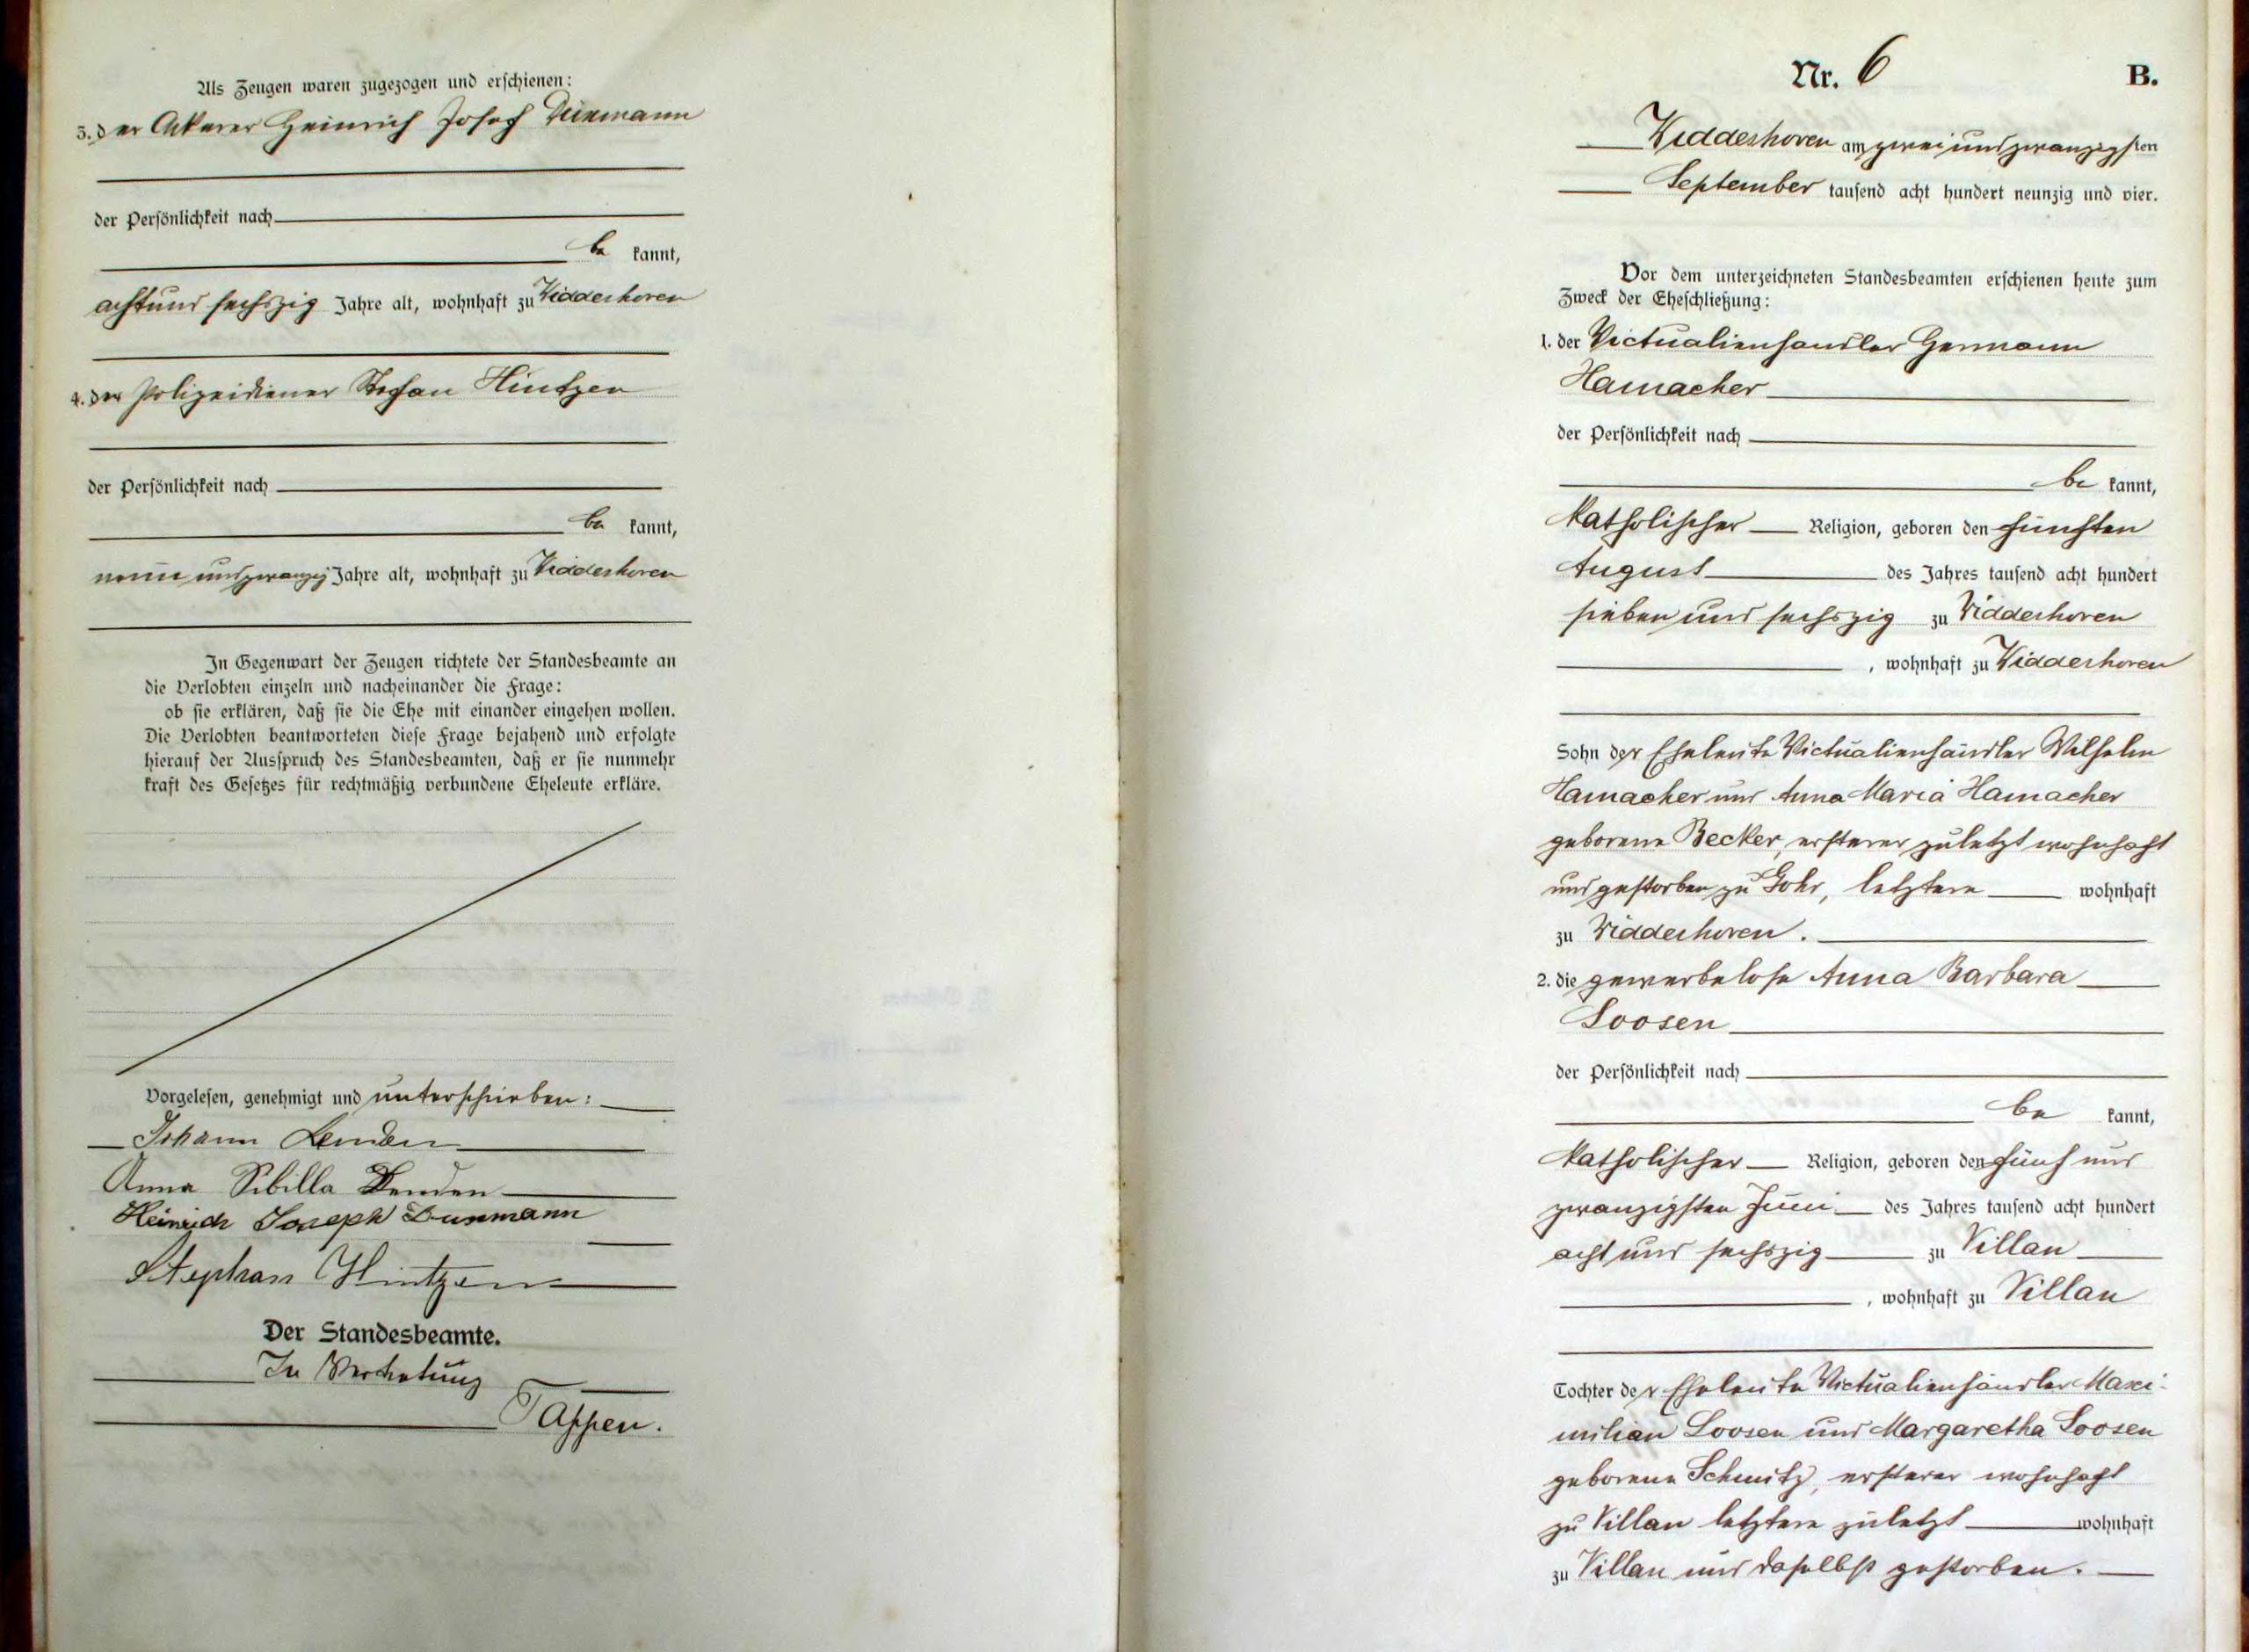 Als Zeugen waren zugezogen und erschienen:
3. der Ackerer Heinrich Josef Dürmann
der Persönlichkeit nach
be kannt,
achtund sechszig Jahre alt, wohnhaft zu Widdeshoven
4. der Polizeidiener Stefan Hintzen
der Persönlichkeit nach
be kannt,
neun undzwanzig Jahre alt, wohnhaft zu Widdeshoven
In Gegenwart der Zeugen richtete der Standesbeamte an
die Verlobten einzeln und nacheinander die Frage:
ob sie erklären, daß sie die Ehe mit einander eingehen wollen.
Die Verlobten beantworteten diese Frage bejahend und erfolgte
hierauf der Ausspruch des Standesbeamten, daß er sie nunmehr
kraft des Gesetzes für rechtmäßig verbundene Eheleute erkläre.
Vorgelesen, genehmigt und unterschrieben:
Johann Lenden
Anna Sibilla Lenden
Heinrich Joseph
Stephan Hintzen
Der Standesbeamte.
In Vertretung
Tappen.
Nr. 6 B.
Widdeshoven am zweiundzwanzigsten
September tausend acht hundert neunzig und vier.
Vor dem unterzeichneten Standesbeamten erschienen heute zum
Zweck der Eheschließung:
1. der Victualienhändler Hermann
Hamacher
der Persönlichkeit nach
be kannt,
katholischer Religion, geboren den fünften
August des Jahres tausend acht hundert
sieben und sechszig zu Widdeshoven
, wohnhaft zu Widdeshoven
Sohn der Eheleute Victualienhändler Wilhelm
Hamacher und Anna Maria Hamacher
geborene Becker, ersterer zuletzt wohnhaft
und gestorben zu Gohr, letztere wohnhaft
zu Widdeshoven.
2. die gewerbelose Anna Barbara
Loosen
der Persönlichkeit nach
be kannt,
katholischer Religion, geboren den fünf und
zwanzigsten Juni des Jahres tausend acht hundert
acht und sechszig zu Villau
, wohnhaft zu Villau
Tochter der Eheleute Victualienhändler Maxi-
milian Loosen und Margaretha Loosen
geborene Schmitz, ersterer wohnhaft
zu Villau letztere zuletzt wohnhaft
zu Villau und daselbst gestorben.